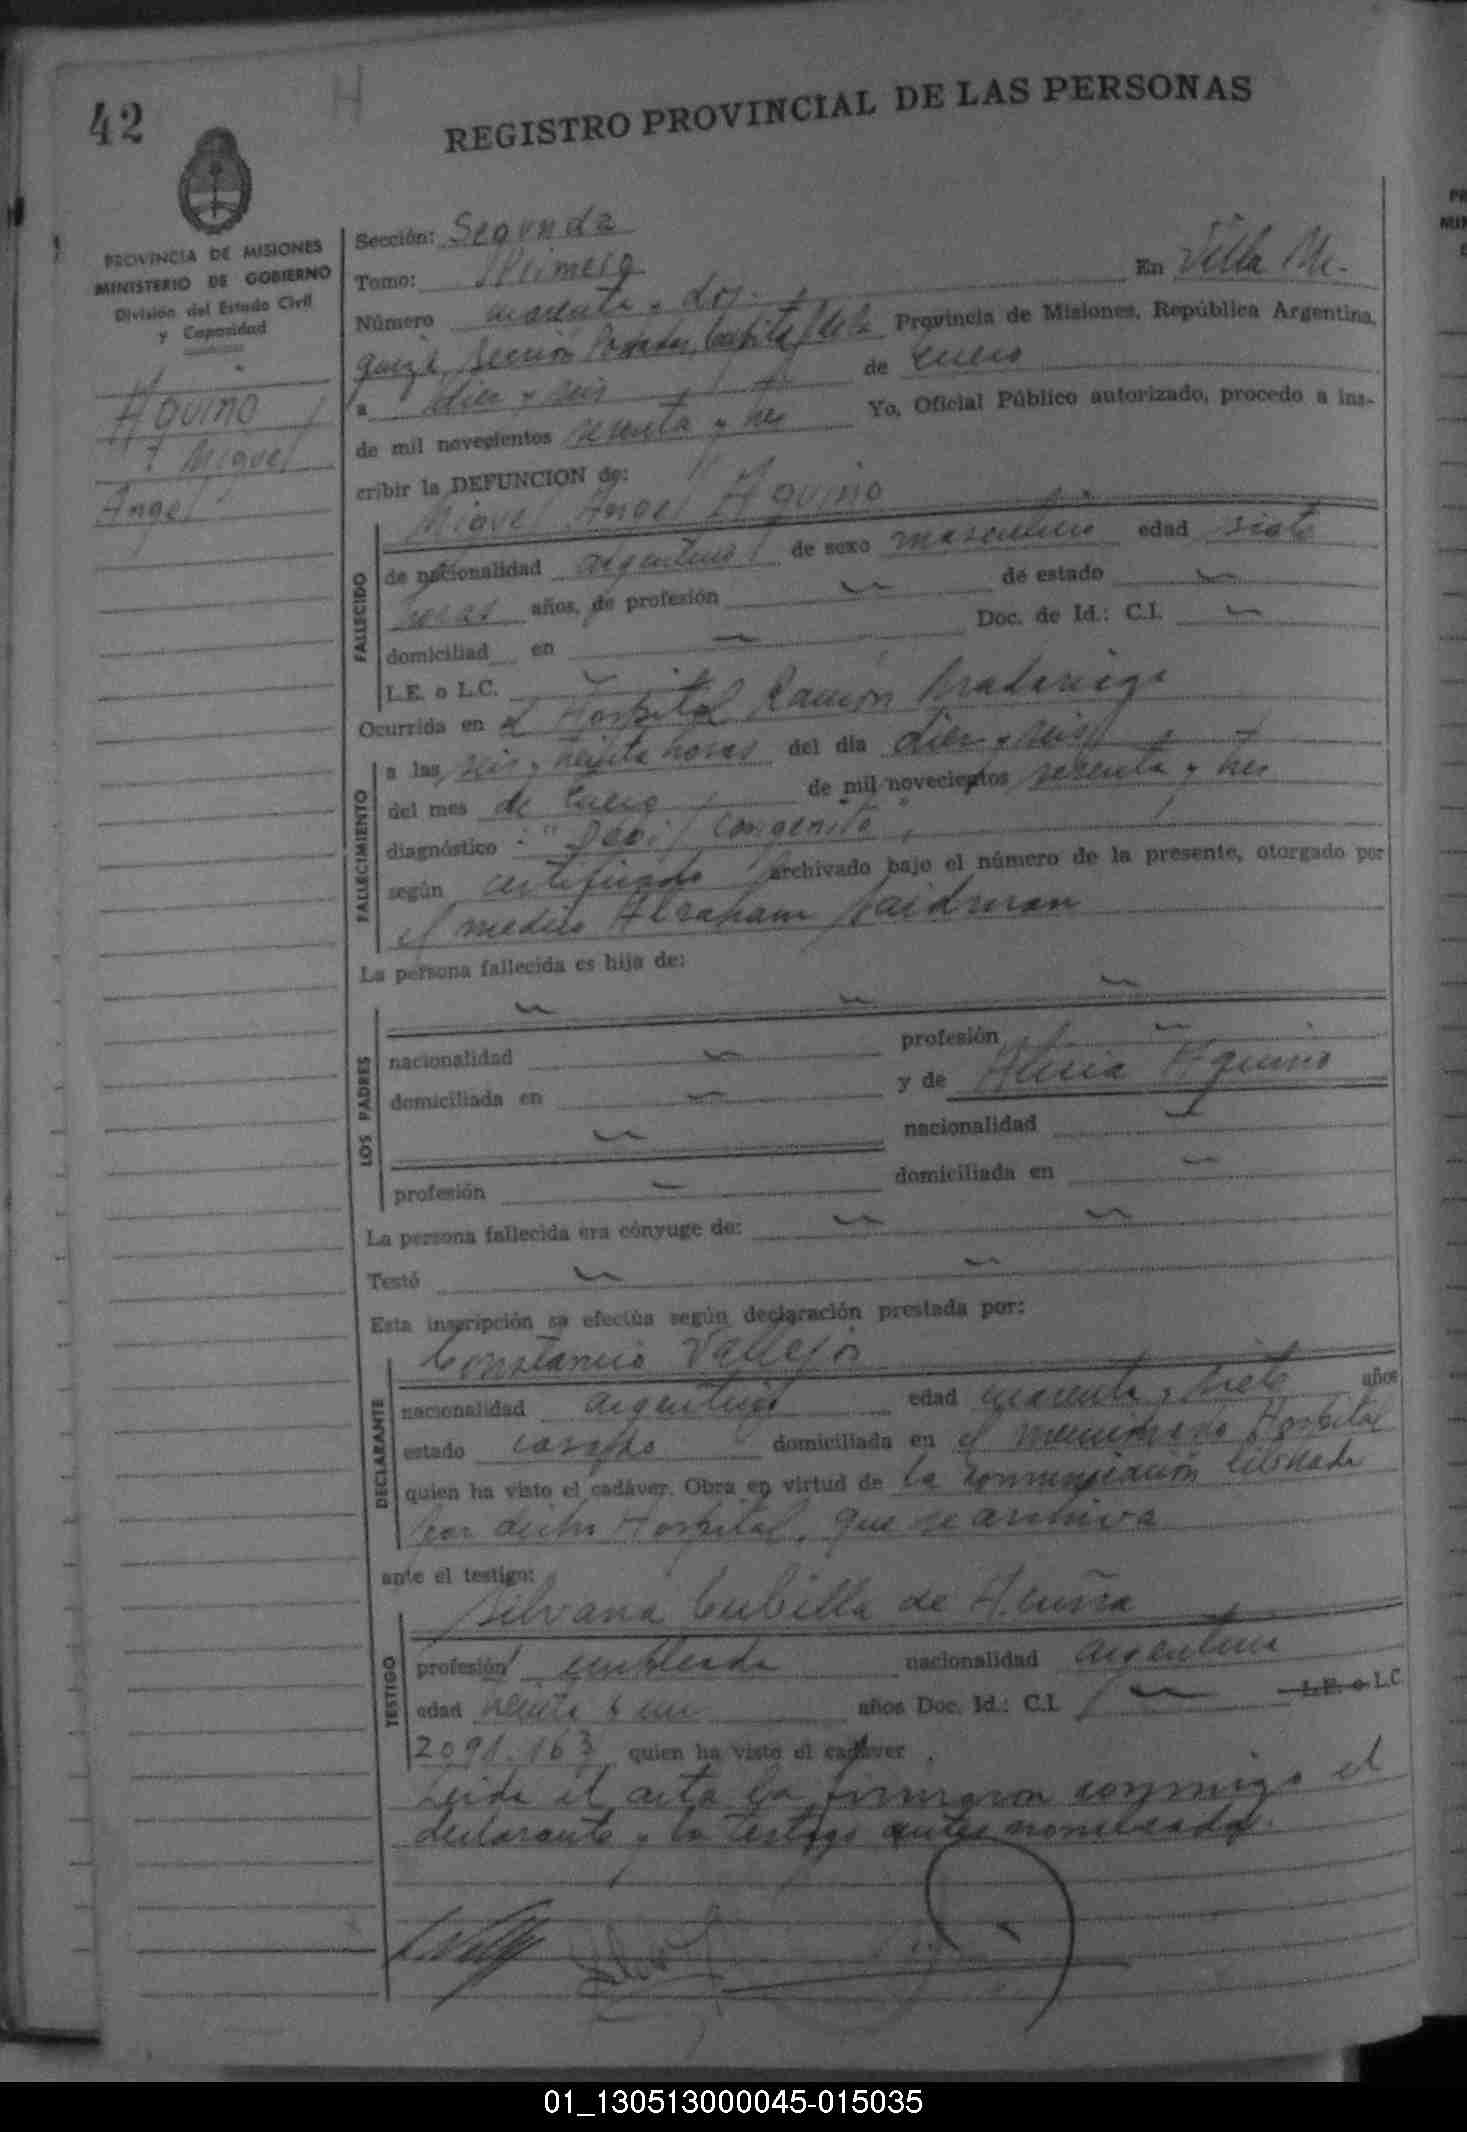 42
H
REGISTRO PROVINCIAL DE LAS PERSONAS
PROVINCIA DE MISIONES
MINISTERIO DE GOBIERNO
División del Estado Civil
y Capacidad
Aquino
Miguel
Angel
Sección: Segunda
Tomo: Primero En Villa Ur-
Número cuarenta y dos.
quiza, Sección Posadas, Capital de la Provincia de Misiones, República Argentina,
a diez y seis de Enero
de mil novecientos sesenta y tres Yo, Oficial Público autorizado, procedo a ins-
cribir la DEFUNCION de:
Miguel Angel Aquino
FALLECIDO
de nacionalidad argentino de sexo masculino edad siete
horas años, de profesión — de estado —
domiciliad en — Doc. de Id.: C.I. —
L.E. o L.C. —
Ocurrida en el Hospital Ramón Madariaga
FALLECIMIENTO
a las seis y treinta horas del día diez y seis
del mes de Enero de mil novecientos sesenta y tres
diagnóstico: "Debil congenito",
según certificado archivado bajo el número de la presente, otorgado por
el medico Abraham Saidman
La persona fallecida es hija de:
— — —
LOS PADRES
nacionalidad — profesión —
domiciliada en — y de Alicia Aquino
— nacionalidad —
profesión — domiciliada en —
La persona fallecida era cónyuge de: — —
Testó — —
Esta inscripción se efectúa según declaración prestada por:
Constancio Vallejos
DECLARANTE
nacionalidad argentino edad cuarenta y siete años
estado casado domiciliada en el mencionado Hospital
quien ha visto el cadáver. Obra en virtud de la comunicación librada
por dicho Hospital, que se archiva
ante el testigo:
Silvana Cubilla de Acuña
TESTIGO
profesión empleada nacionalidad argentina
edad treinta y un años Doc. Id.: C.I. — L.E. o L.C.
2091.163 quien ha visto el cadáver.
Leida el acta la firmaron conmigo el
declarante y la testigo antes nombrada.
01_130513000045-015035